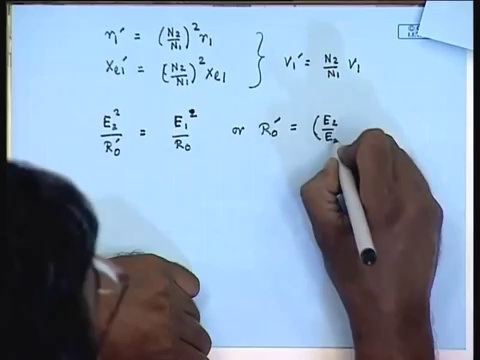 r₁' = (N₂/N₁)² r₁
xₑ₁' = (N₂/N₁)² xₑ₁ } V₁' = N₂/N₁ V₁
E₂²/R₀' = E₁²/R₀ or R₀' = (E₂/E₁